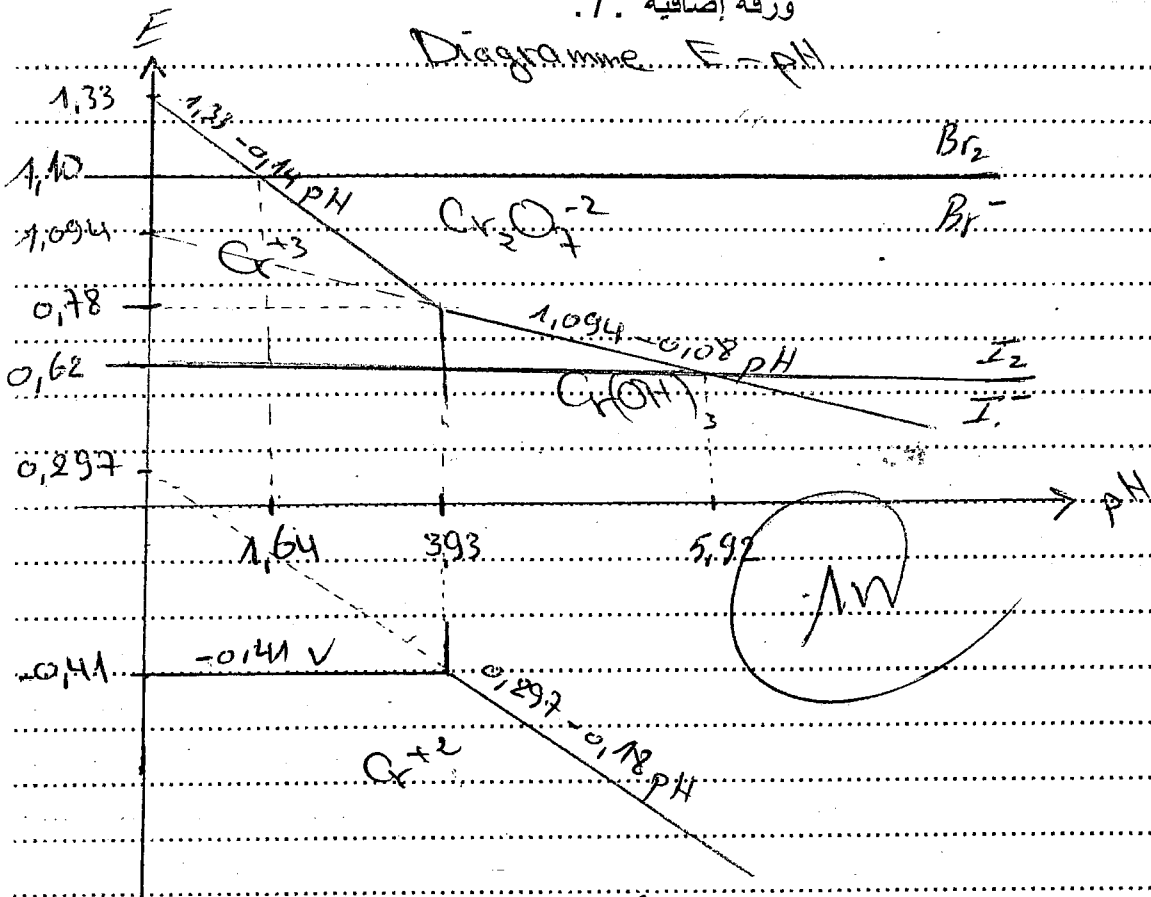 ورقة إضافية .1.
Diagramme E-pH
E
1,33
1,33 -0,14 pH
1,10
Br₂
Br⁻
Cr₂O₇⁻²
1,094
Cr⁺³
0,78
1,094 -0,08 pH
0,62
I₂
I⁻
Cr(OH)₃
0,297
pH
1,64
393
5,92
-0,41
-0,41 V
0,297 -0,18 pH
Cr⁺²